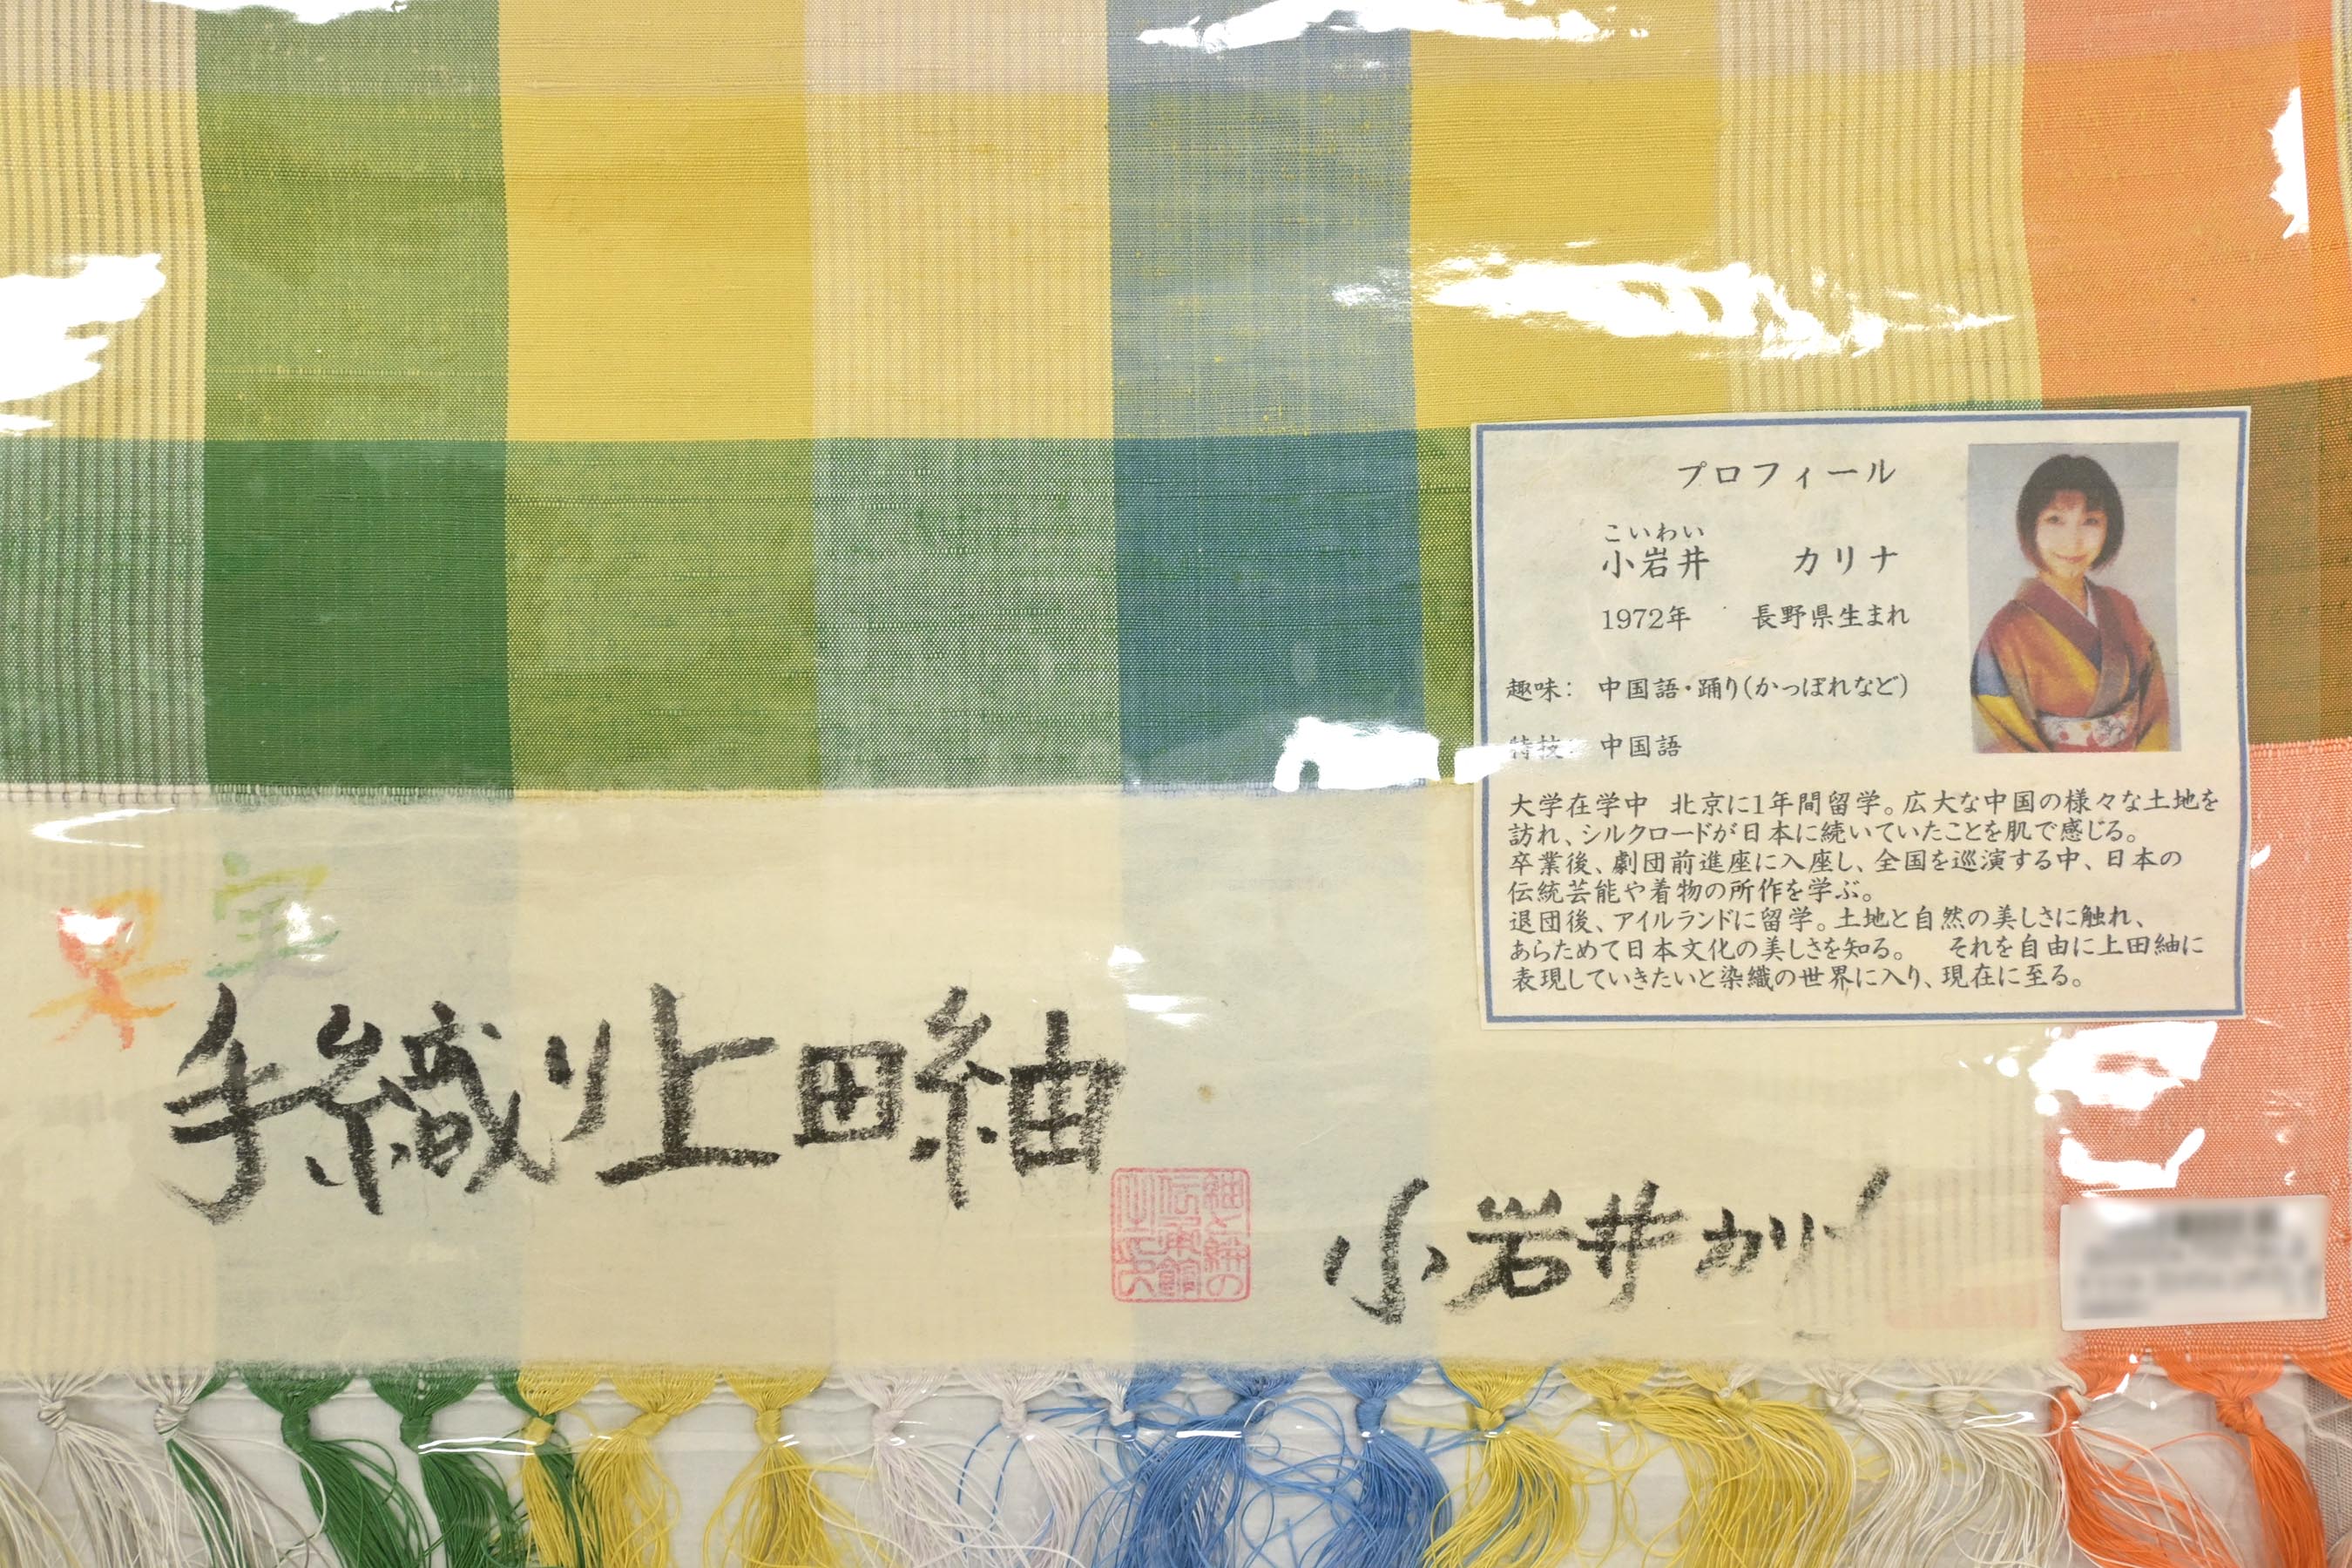 プロフィール
こいわい
小岩井　カリナ
1972年　長野県生まれ
趣味：　中国語・踊り(かっぽれなど)
特技：　中国語
大学在学中　北京に1年間留学。広大な中国の様々な土地を
訪れ、シルクロードが日本に続いていたことを肌で感じる。
卒業後、劇団前進座に入座し、全国を巡演する中、日本の
伝統芸能や着物の所作を学ぶ。
退団後、アイルランドに留学。土地と自然の美しさに触れ、
あらためて日本文化の美しさを知る。　それを自由に上田紬に
表現していきたいと染織の世界に入り、現在に至る。
手織り上田紬
小岩井カリナ